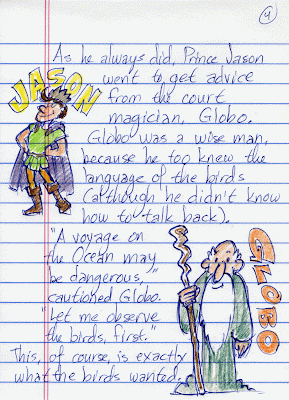 9
JASON
As he always did, Prince Jason
went to get advice
from the court
magician, Globo.
Globo was a wise man,
because he too knew the
language of the birds
(although he didn't know
how to talk back).
"A voyage on
the Ocean may
be dangerous,"
cautioned Globo.
"Let me observe
the birds, first."
This, of course, is exactly
what the birds wanted.
GLOBO